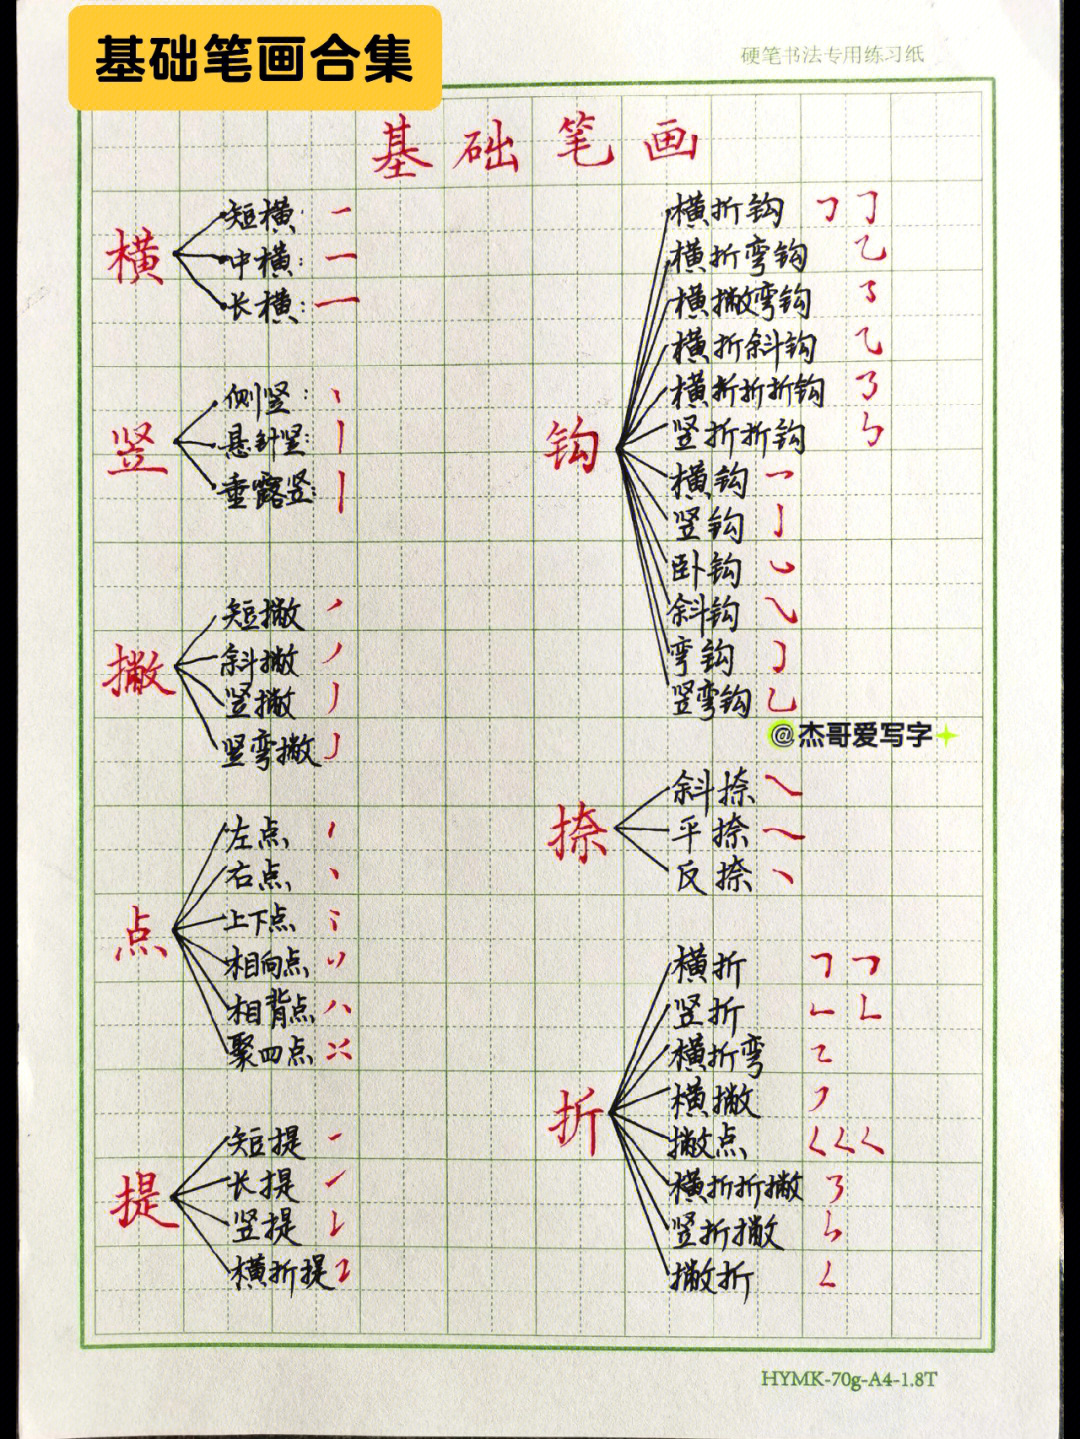 基础笔画合集
硬笔书法专用练习纸
基础笔画
横
短横:
中横:
长横:
竖
侧竖:
悬针竖:
垂露竖:
撇
短撇
斜撇
竖撇
竖弯撇
点
左点
右点
上下点
相向点
相背点
聚四点
提
短提
长提
竖提
横折提
钩
横折钩
横折弯钩
横撇弯钩
横折斜钩
横折折折钩
竖折折钩
横钩
竖钩
卧钩
斜钩
弯钩
竖弯钩
@杰哥爱写字
捺
斜捺
平捺
反捺
折
横折
竖折
横折弯
横撇
撇点
横折折撇
竖折撇
撇折
HYMK-70g-A4-1.8T